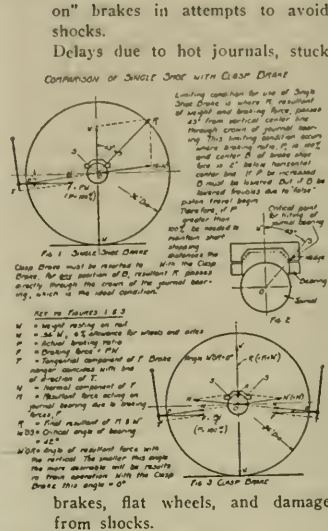 on" brakes in attempts to avoid
shocks.
Delays due to hot journals, stuck
COMPARISON OF SINGLE SHOE WITH CLASP BRAKE
Limiting condition for use of Single
Shoe Brake is where R, resultant
of weight and braking force, passes
45° from vertical center line
through crown of journal bear-
ing. This limiting condition occurs
where braking ratio, P, is 100%
and center B of brake shoe
face is 2" below horizontal
center line. If P be increased
B must be lowered. But if B be
lowered troubles due to "false"
piston travel begin.
Therefore, if P
greater than
100% be needed to
maintain short
stopping
distances the
Clasp Brake must be resorted to. With the Clasp
Brake, for any position of B, resultant R passes
directly through the crown of the journal bear-
ing, which is the ideal condition.
FIG. 1 SINGLE SHOE BRAKE
Critical point
for tilting of
journal bearing
Wedge
Bearing
Journal
FIG. 2
KEY TO FIGURES 1 & 3
W = Weight resting on rail
P = Actual braking ratio
F = Braking force = PW
T = Tangential component of F. Brake
hanger coincides with line
of direction of T.
N = Normal component of F
M = Resultant force acting on
journal bearing due to braking
forces, F
= Critical angle of bearing
= 42°
= Angle of resultant force with
the vertical. The smaller this angle
the more desirable will be results
in train operation. With the Clasp
Brake this angle = 0°
FIG. 3 CLASP BRAKE
brakes, flat wheels, and damage
from shocks.